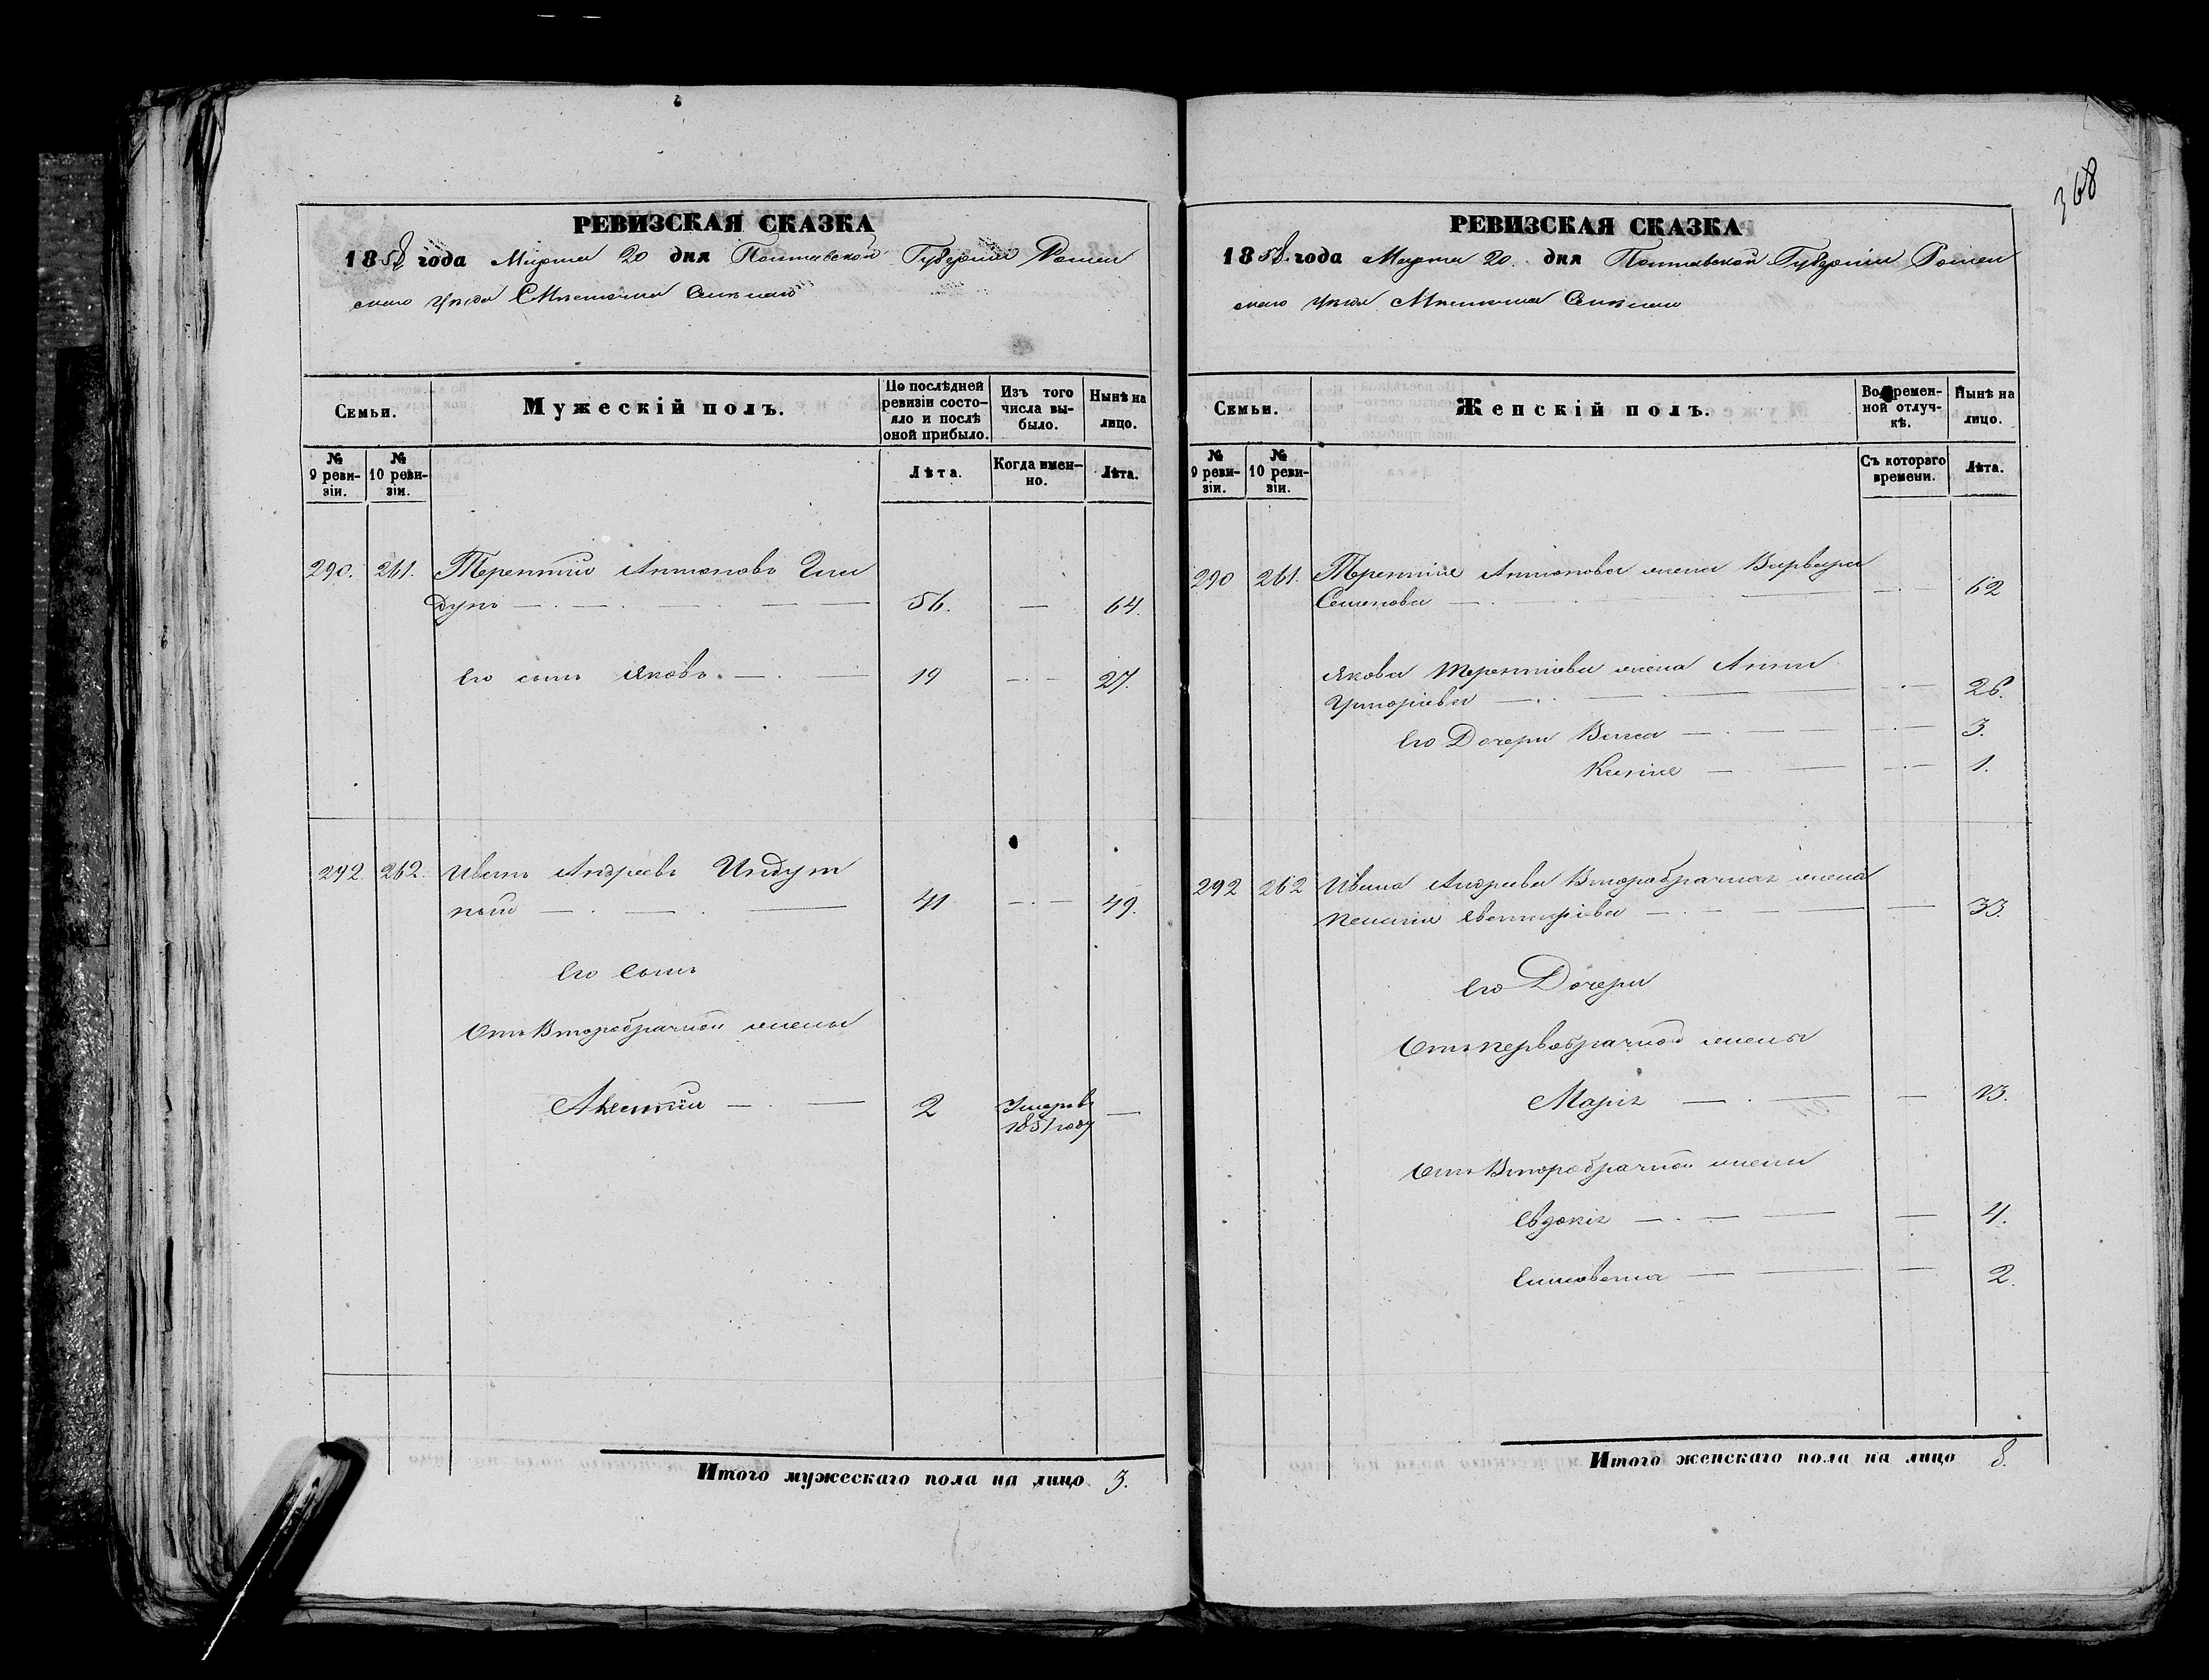 368
РЕВИЗСКАЯ СКАЗКА
1858 года Марта 20 дня Полтавской Губерніи Ромен
скаго уѣзда Мѣстечка
Семьи.
Мужескій полъ.
По послѣдней ревизіи состояло и послѣ оной прибыло.
Изъ того числа выбыло.
Нынѣ на лицо.
№ 9 ревизіи.
№ 10 ревизіи.
Лѣта.
Когда именно.
Лѣта.
290. 261. Терентій Антоновъ
дунъ — 56. — 64.
Его сынъ Яковъ — 19 — 27.
292. 262. Иванъ Андреевъ Индут
ный — 41 — 49.
Его сынъ
Отъ Второбрачной жены
2 Умеръ въ 1851 году —
Итого мужескаго пола на лицо 3.
РЕВИЗСКАЯ СКАЗКА
1858 года Марта 20. дня Полтавской Губерніи Ромен
скаго уѣзда Мѣстечка
Семьи.
Женскій полъ.
Во временной отлучкѣ.
Нынѣ на лицо.
№ 9 ревизіи.
№ 10 ревизіи.
Съ котораго времени.
Лѣта.
290 261. Терентія Антонова жена Варвара
Семенова — 62
Якова Терентіева жена Анна
Григоріева — 26.
Его Дочери — 3.
Ксенія — 1.
292 262 Ивана Андреева Второбрачная жена
— 33.
Его Дочери
Отъ первобрачной жены
Марія — 13.
Отъ Второбрачной жены
Евдокія — 4.
Елисавета — 2.
Итого женскаго пола на лицо 8.